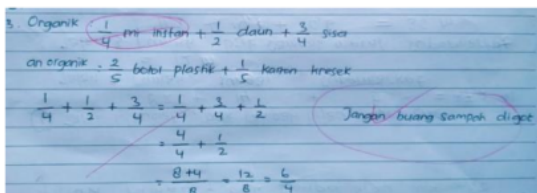 3. Organik 1/4 mi instan + 1/2 daun + 3/4 sisa
an organik = 2/5 botol plastik + 1/5 kresek
1/4 + 1/2 + 3/4 = 1/4 + 3/4 + 1/2
Jangan buang sampah digot
= 4/4 + 1/2
= 8+4/8 = 12/8 = 6/4